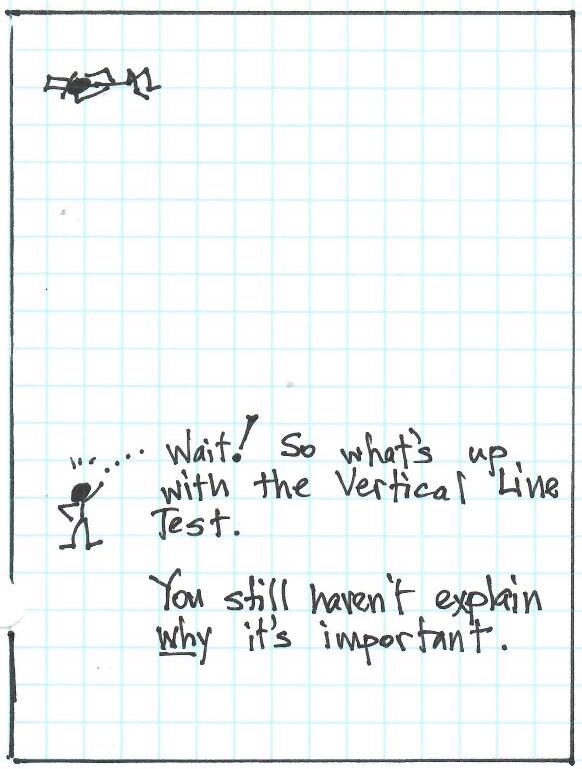 Wait! So what's up
with the Vertical Line
Test.
You still haven't explain
why it's important.